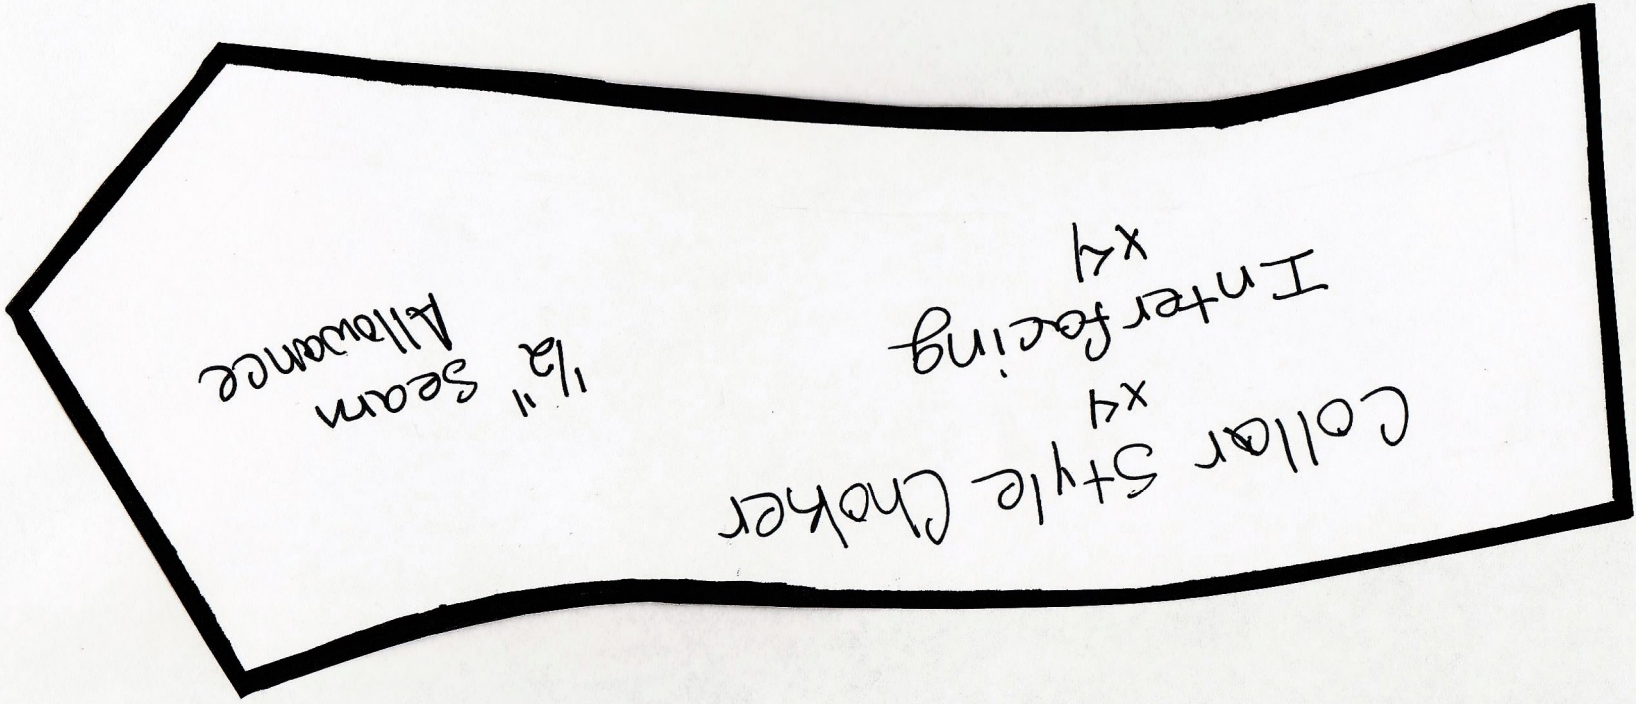 Collar Style Choker
x4
Interfacing
x4
1/2" Seam
Allowance